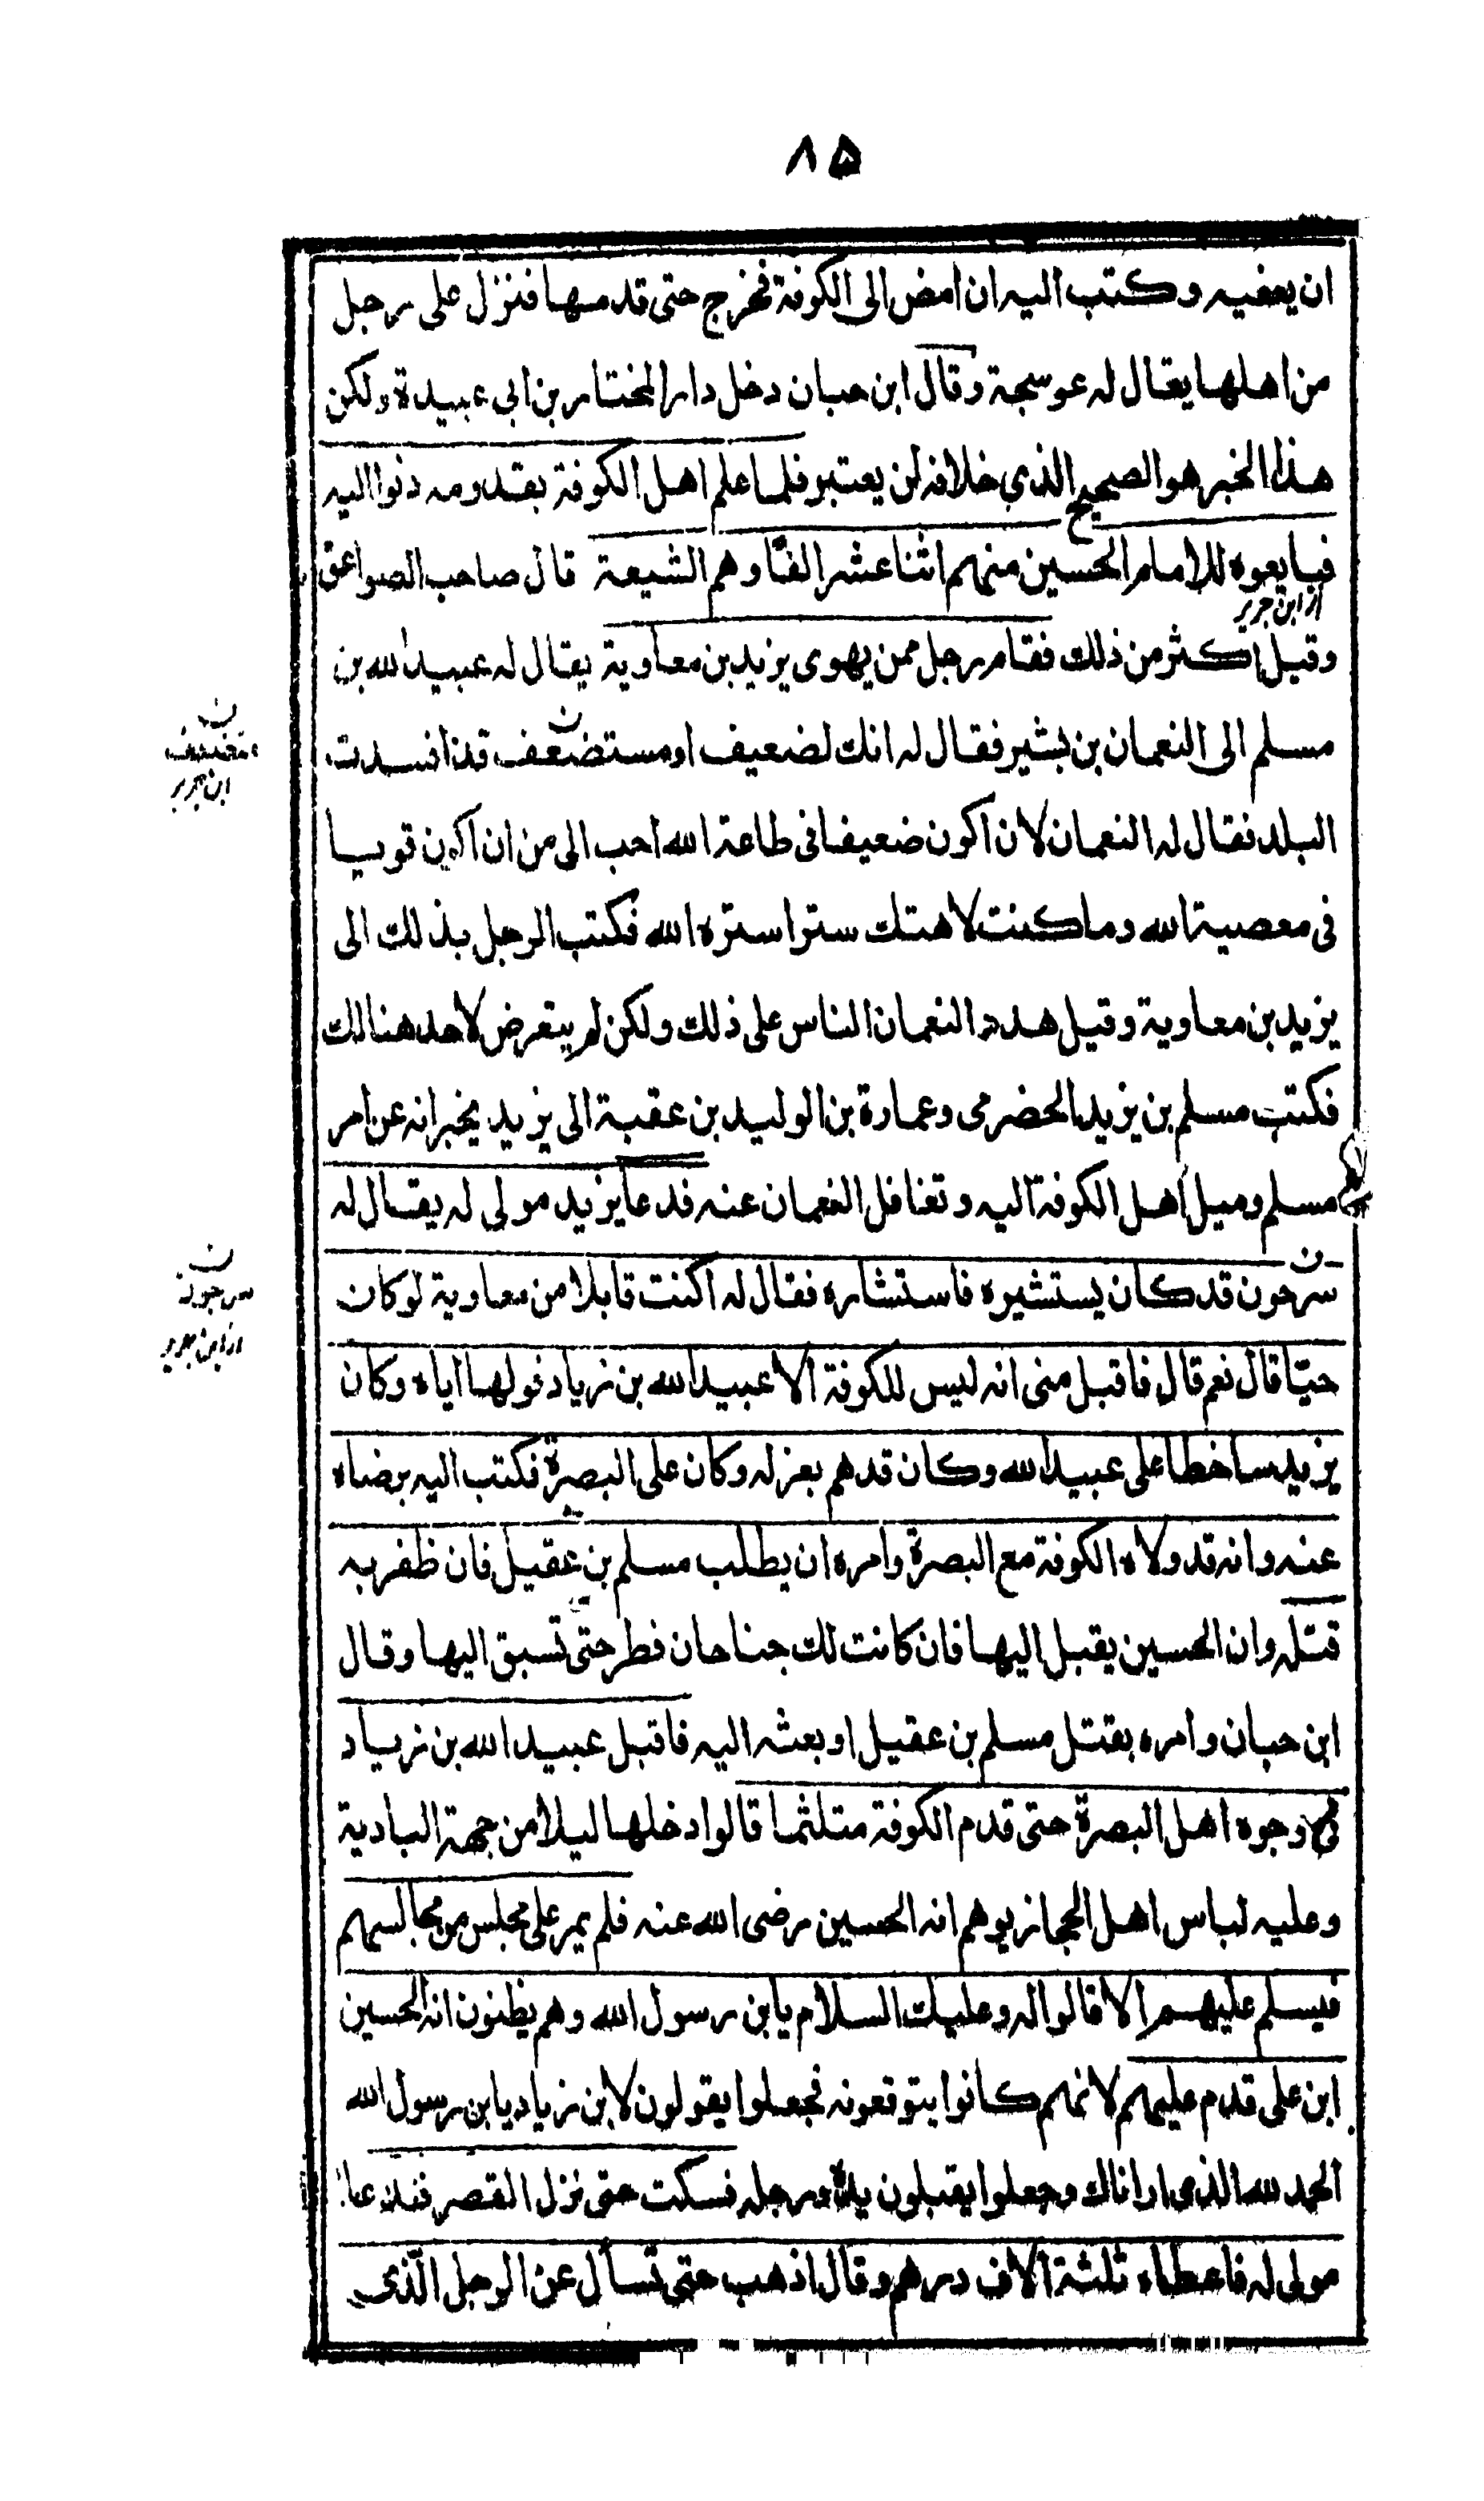 ٨٥
ان يعفيه وكتب اليه ان امض الى الكوفة فخرج حتى قدمها فنزل على رجل
من اهلها يقال له عوسجة وقال ابن حبان دخل دار المختار بن ابي عبيدة ولكن
هذا الخبر هو الصحيح الذي خلافه لن يعتبر فلما علم اهل الكوفة بقدومه دنوا اليه
فبايعوه للامام الحسين منهم اثنا عشر الفًا وهم الشيعة قال صاحب الصواعق
از ابن جرير
وقيل اكثر من ذلك فقام رجل ممن يهوى يزيد بن معاوية يقال له عبيد الله بن
مسلم الى النعمان بن بشير فقال له انك لضعيف او مستضعف قد افسدت
ن
متضعف
ابن جرير
البلد فقال له النعمان لان اكون ضعيفا فى طاعة الله احب الى من ان اكون قويا
فى معصية الله وما كنت لاهتك سترا ستره الله فكتب الرجل بذلك الى
يزيد بن معاوية وقيل هدد النعمان الناس على ذلك ولكن لم يتعرض لاحد هنالك
فكتب مسلم بن يزيد الحضرمى وعمارة بن الوليد بن عقبة الى يزيد يخبرانه عن امر
مسلم وميل اهل الكوفة اليه وتغافل النعمان عنه فدعا يزيد مولى له يقال له
سرحون قد كان يستشيره فاستشاره فقال له اكنت قابلا من معاوية لو كان
ن
سرجون
از ابن جرير
حيّا قال نعم قال فاقبل منى انه ليس للكوفة الا عبيد الله بن زياد فولها اياه وكان
يزيد ساخطا على عبيد الله وكان قدهم بعزله وكان على البصرة فكتب اليه برضاه
عنه وانه قد ولاه الكوفة مع البصرة وامره ان يطلب مسلم بن عقيل فان ظفر به
قتله وان الحسين يقبل اليها فان كانت لك جناحان فطر حتى تسبق اليها وقال
ابن حبان وامره بقتل مسلم بن عقيل او بعثه اليه فاقبل عبيد الله بن زياد
فى وجوه اهل البصرة حتى قدم الكوفة متلثما قالوا دخلها ليلا من جهة البادية
وعليه لباس اهل الحجاز يوهم انه الحسين رضى الله عنه فلم يمر على مجلس من مجالسهم
فيسلم عليهم الا قالوا له وعليك السلام يا بن رسول الله وهم يظنون انه الحسين
ابن على قدم عليهم لانهم كانوا يتوقعونه فجعلوا يقولون لابن زياد يا بن رسول الله
الحمد لله الذى اراناك وجعلوا يقبلون يده ورجله فسكت حتى نزل القصر فدعا
مولى له فاعطاه ثلثة الاف درهم وقال اذهب حتى تسأل عن الرجل الّذى